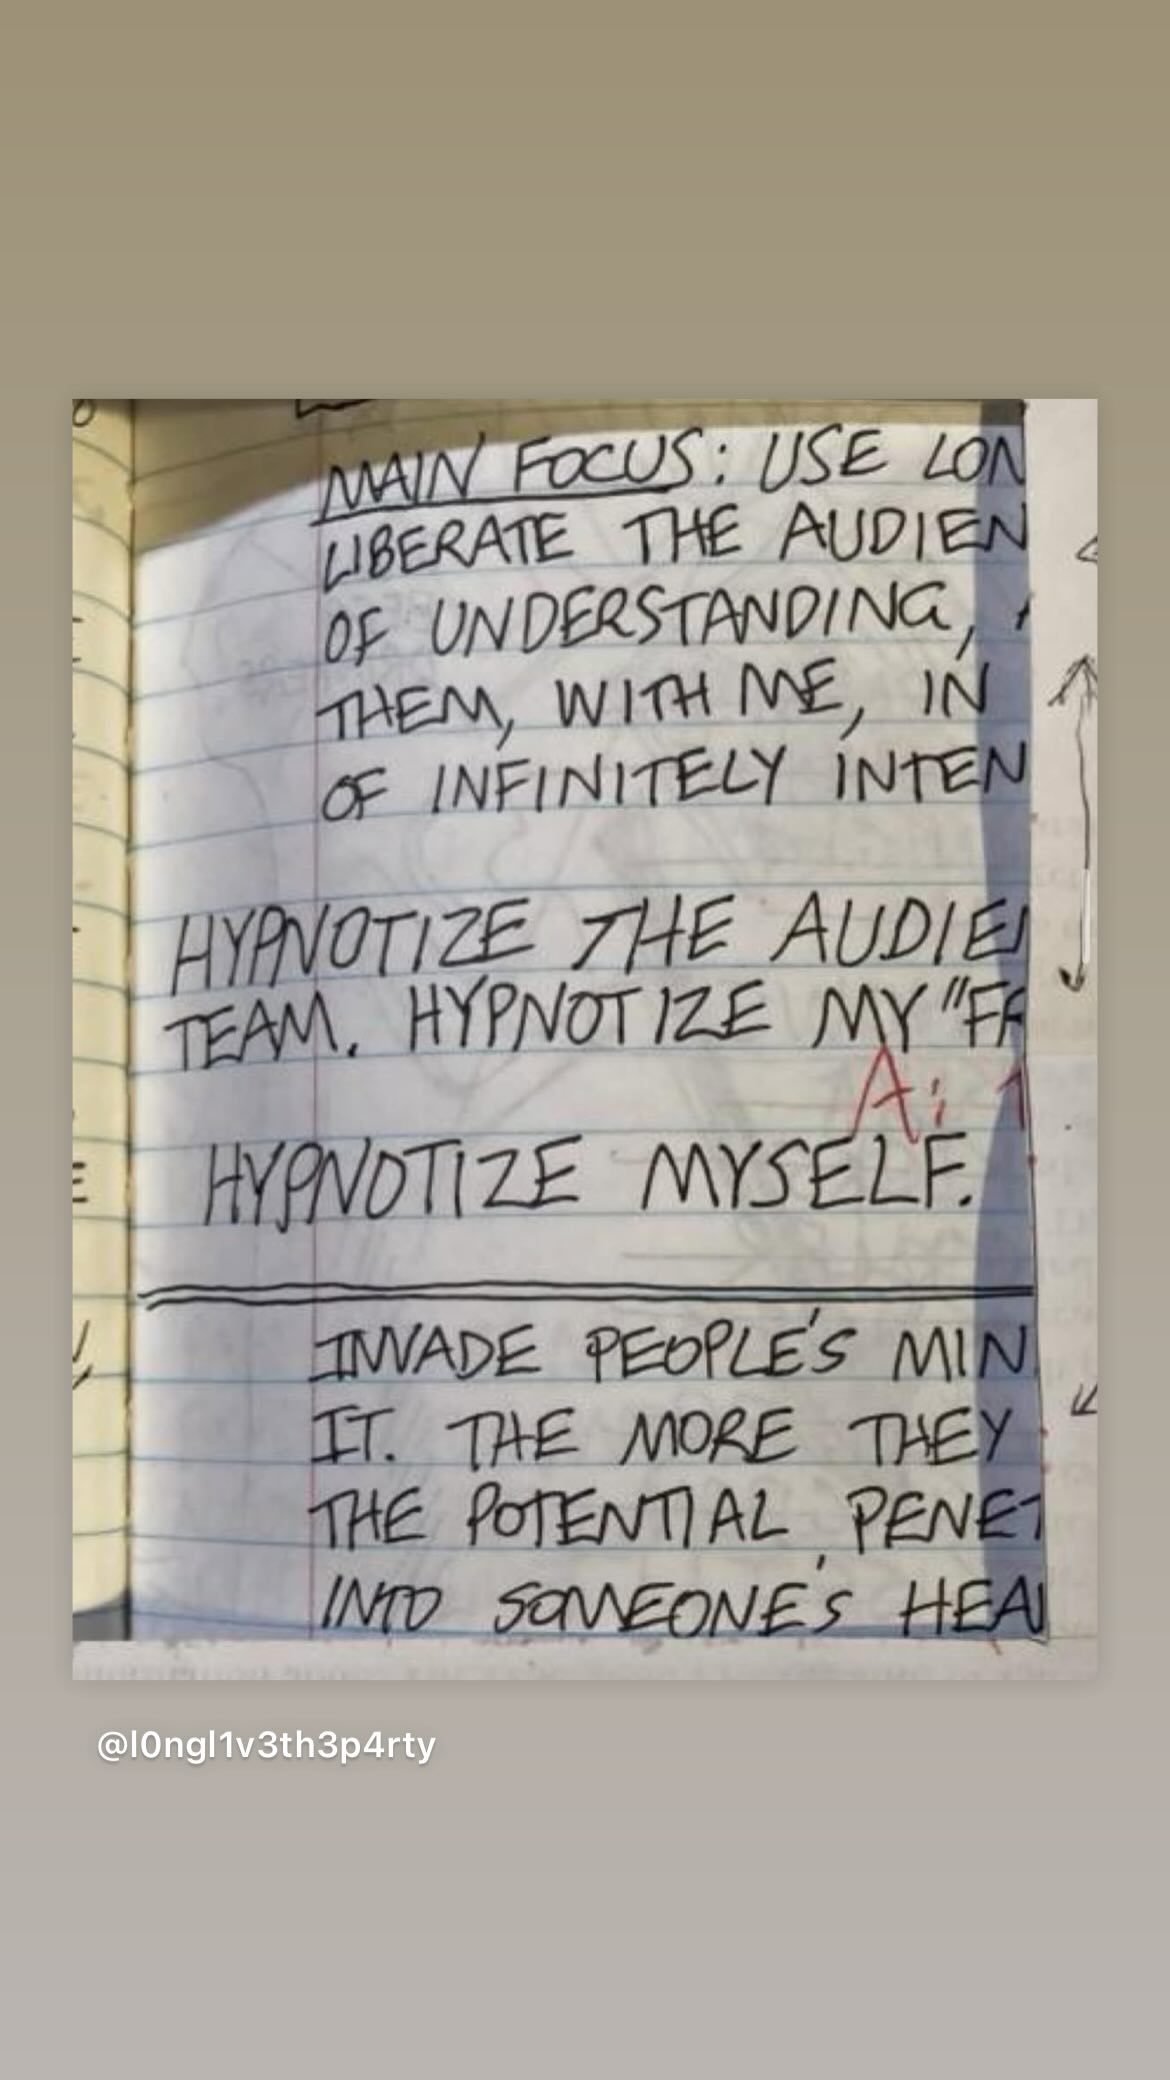 MAIN FOCUS: USE LON
LIBERATE THE AUDIEN
OF UNDERSTANDING,
THEM, WITH ME, IN
OF INFINITELY INTEN
HYPNOTIZE THE AUDIE
TEAM. HYPNOTIZE MY "FA
A:
HYPNOTIZE MYSELF.
INVADE PEOPLE'S MIN
IT. THE MORE THEY
THE POTENTIAL PENET
INTO SOMEONE'S HEA
@l0ngl1v3th3p4rty